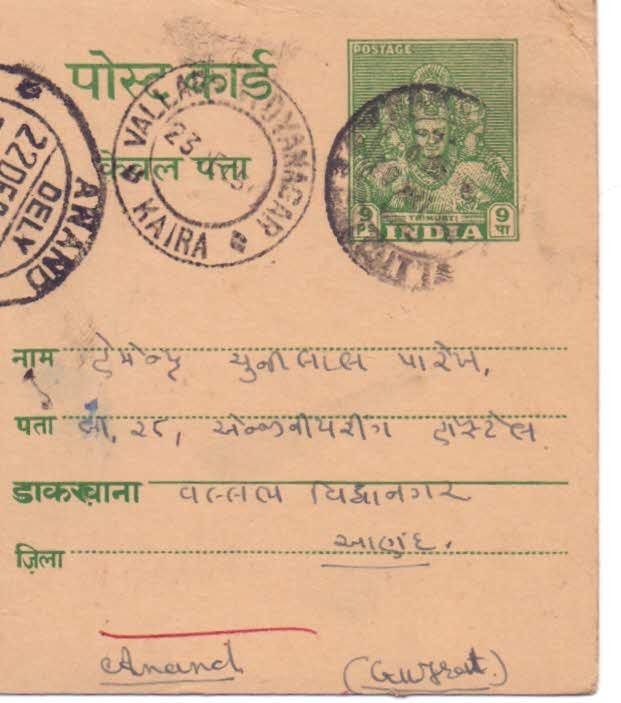 पोस्ट कार्ड
केवल पत्ता
POSTAGE
TRIMURTI
9 Ps INDIA 9 पा
VALLABH VIDYANAGAR
23
KAIRA
22 DEC
DELY
ANAND
नाम હેમેન્દ્ર ચુનીલાલ પારેખ,
पता બી, ૨૮, એન્જીનીયરીંગ હોસ્ટેલ
डाकखाना વલ્લભ વિદ્યાનગર
ज़िला આણંદ.
Anand (Gujrat.)